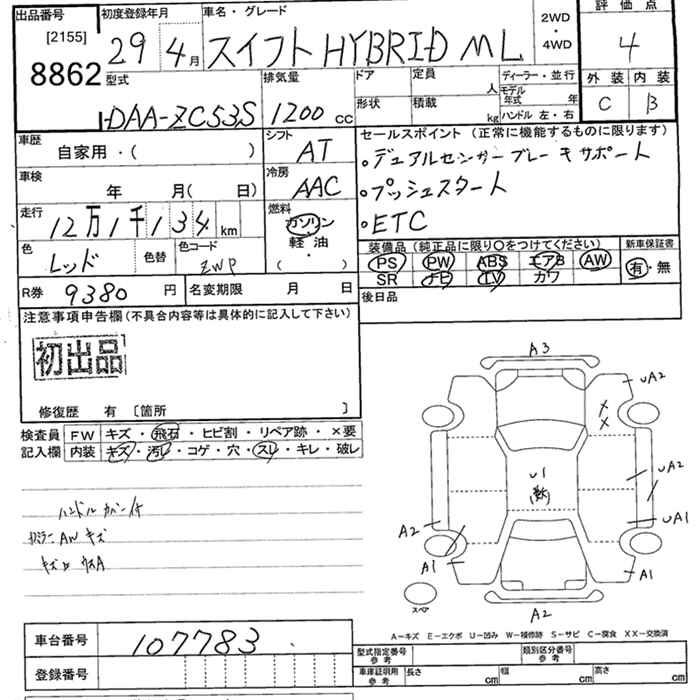 出品番号 初度登録年月 車名・グレード 2WD ・ 4WD 評価点
[2155]
8862 29 4月 スイフト HYBRID ML 4
型式 排気量 ドア 定員 人 ディーラー・並行 外装 内装
DAA-ZC53S 1200 cc 形状 積載 kg モデル年式 年 ハンドル 左・右 C B
車歴 シフト セールスポイント (正常に機能するものに限ります)
自家用・( ) AT 。デュアルセンサーブレーキサポート
車検 冷房 。プッシュスタート
年 月( 日) AAC 。ETC
走行 燃料
12万1千134 km ガソリン
軽油
・
( )
色 色替 色コード 装備品 (純正品に限り○をつけてください) 新車保証書
レッド ZWP PS PW ABS エアB AW 有・無
SR ナビ TV カワ
R券 9380 円 名変期限 月 日 後日品
注意事項申告欄 (不具合内容等は具体的に記入して下さい)
初出品
修復歴 有 [箇所 ]
検査員 FW キズ・飛石・ヒビ割・リペア跡・×要
記入欄 内装 キズ・汚レ・コゲ・穴・スレ・キレ・破レ
ハンドルカバー付
AW キズ
A3
UA2
U1
UA2
A2 UA1
A1 A1
スペア
A2
A－キズ E－エクボ U－凹み W－補修跡 S－サビ C－腐食 XX－交換済
車台番号 107783
登録番号
型式指定番号 参考 類別区分番号 参考
車庫証明用 参考 長さ cm 幅 cm 高さ cm